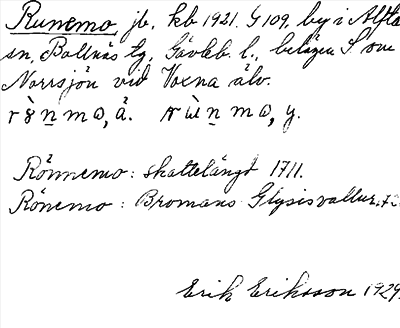 Runemo, jb. kb 1921. G 109. by i Alfta
sn, Bollnäs tg, Gävleb. l., belägen S om
Norrsjön vid Voxna älv.
å. y.
Rönnemo: skattelängd 1711.
Rönemo: Bromans Glysisvallur.
Erik Eriksson 1929.